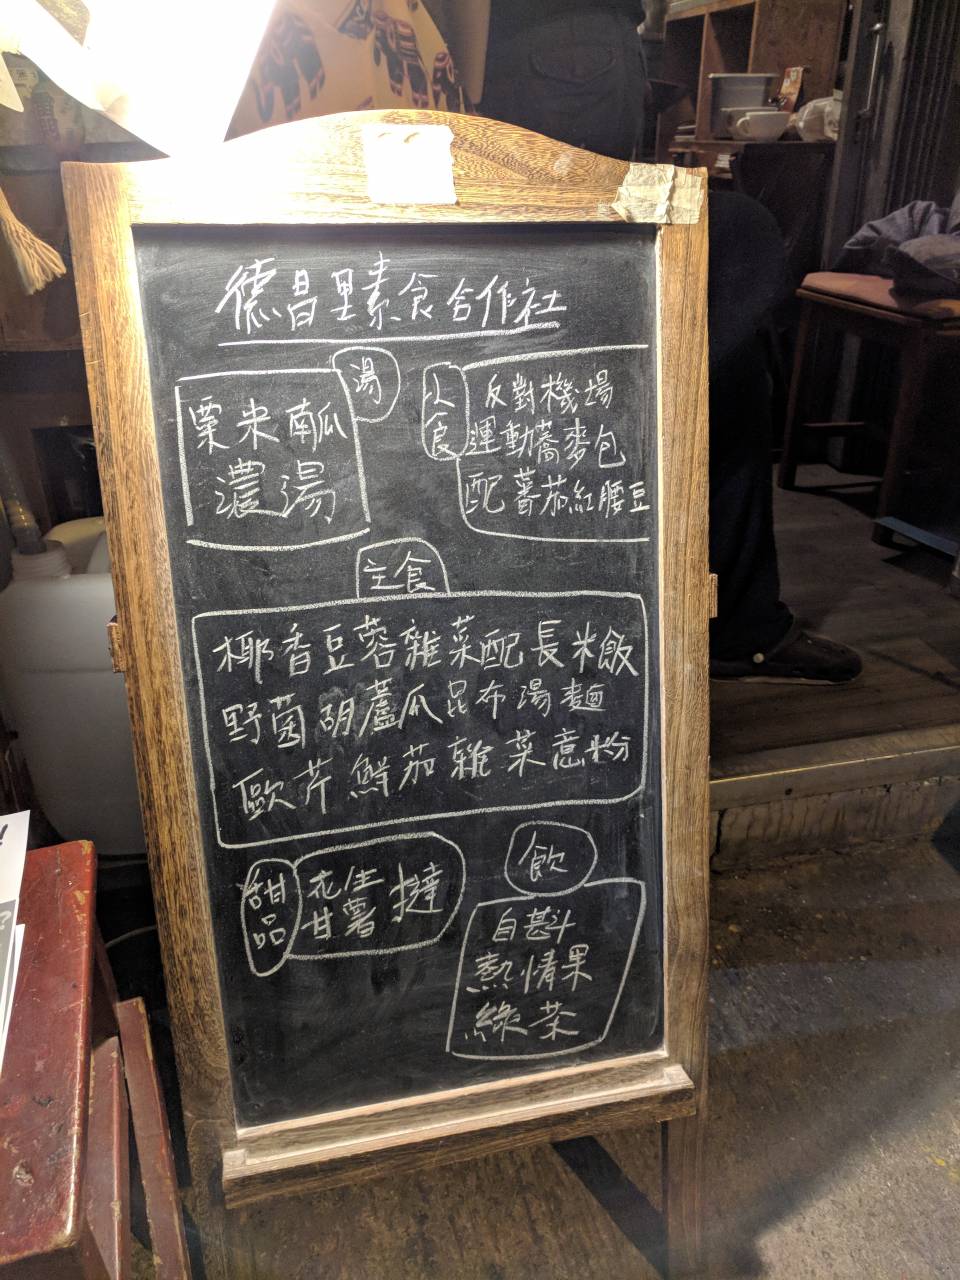 德昌里素食合作社
湯
粟米南瓜
濃湯
小食
反對機場
運動蕎麥包
配蕃茄紅腰豆
主食
椰香豆蓉雜菜配長米飯
野菌胡蘆瓜昆布湯麵
歐芹鮮茄雜菜意粉
甜品
花生
甘薯
撻
飲
自甚斗
熱情果
綠茶